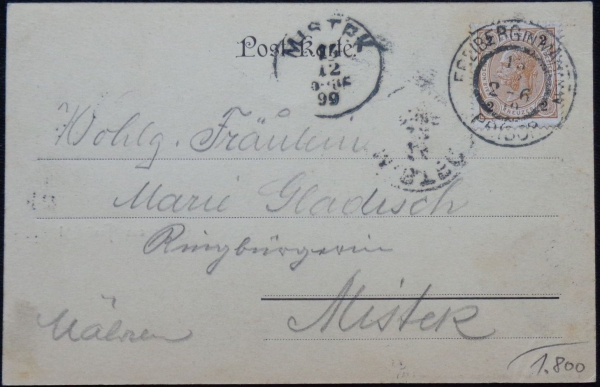 Post-Karte.
MISTEK
12
99
FREIBERG IN MÄHREN
PŘIBOR
Wohlg. Fräulein
Marie Gladisch
Ringbürgerin
Mistek
Mähren
1.800